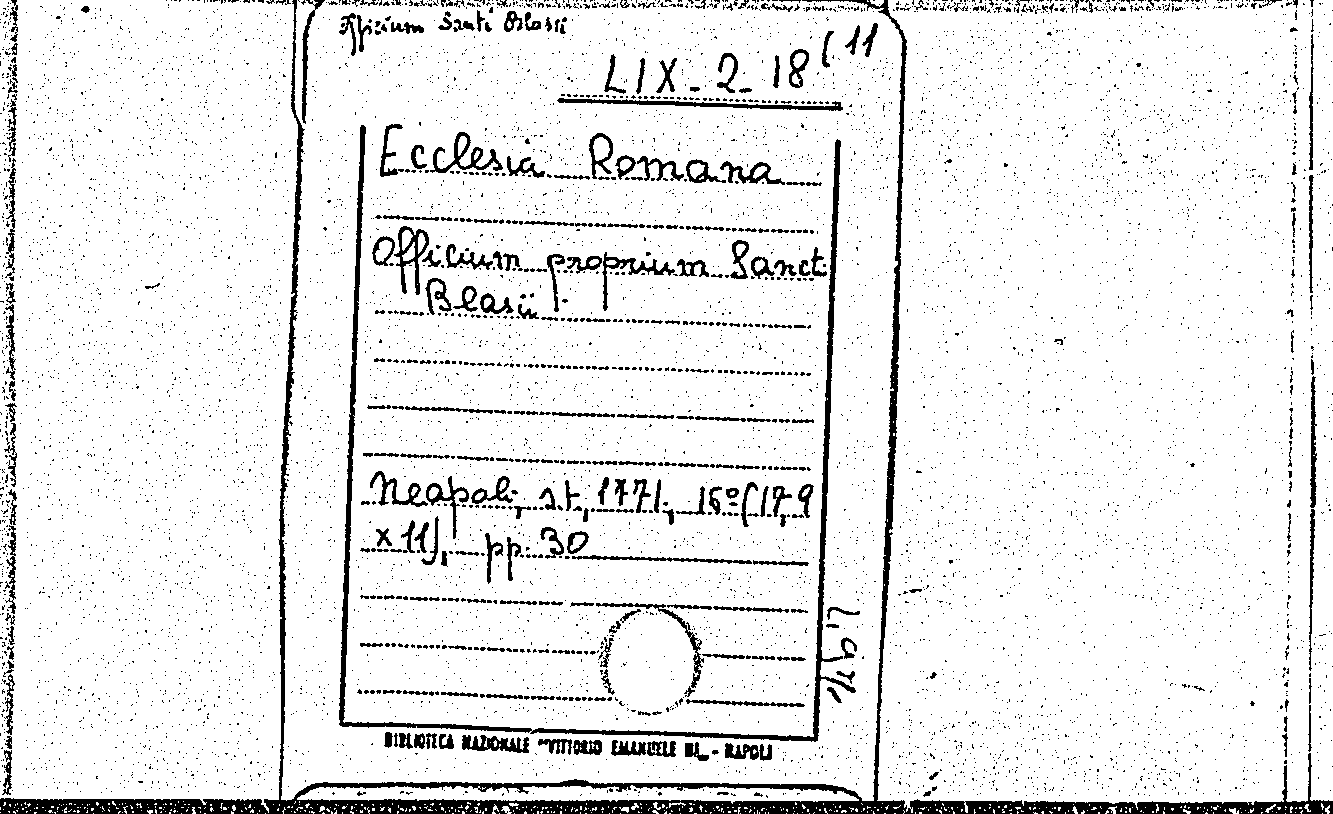 Officium Santi Blasii
LIX-2-18(11
Ecclesia Romana
Officium proprium Sanct.
Blasii.
Neapoli, s.t., 1771; 16º (17,9
x 11), pp. 30
BIBLIOTECA NAZIONALE "VITTORIO EMANUELE III_ - NAPOLI